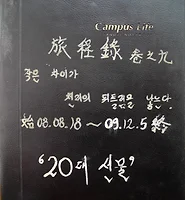 Campus Life
旅程錄 卷之九
작은 차이가
천재의 피트리오 낳는다
始 08.08.18 ~ 09.12.5 終
"20대 선물"